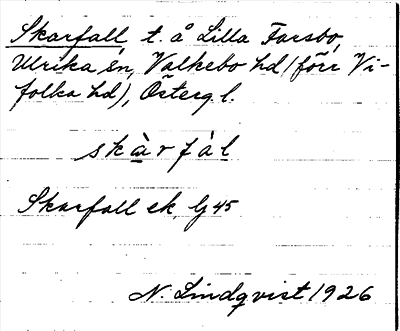 Skarfall t. å Lilla Farsbo,
Ulrika sn, Valkebo hd (förr Vi-
folka hd), Österg. l.
skàrfàl
Skarfall ek, Gj 45
N. Lindqvist 1926